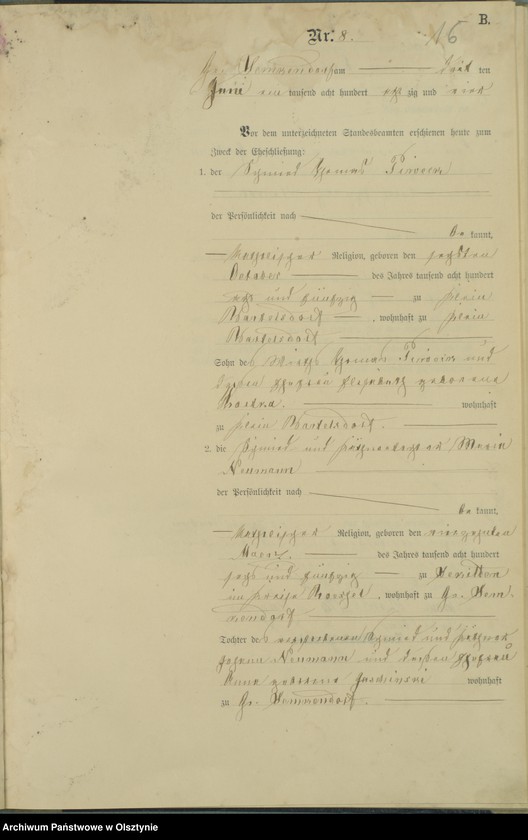 B.
Nr. 8.
Gr. Hemmendorf am — drei ten
Juni ein tausend acht hundert acht zig und vier
Vor dem unterzeichneten Standesbeamten erschienen heute zum
Zweck der Eheschließung:
1. der Schmied Thomas
der Persönlichkeit nach
be kannt,
katholischer Religion, geboren den sechsten
October des Jahres tausend acht hundert
und fünfzig zu Klein
Bartelsdorf, wohnhaft zu Klein
Bartelsdorf
Sohn des Wirths Thomas und
dessen Ehefrau Elisabeth geborene
wohnhaft
zu Klein Bartelsdorf.
2. die Schmied und Maria
Neumann
der Persönlichkeit nach
be kannt,
katholischer Religion, geboren den vierzehnten
März des Jahres tausend acht hundert
sechs und fünfzig zu
im Kreise Roessel, wohnhaft zu Gr. Hem-
mendorf
Tochter des verstorbenen Schmied und
Johann Neumann und dessen Ehefrau
Anna geborene wohnhaft
zu Gr. Hemmendorf.
Archiwum Państwowe w Olsztynie